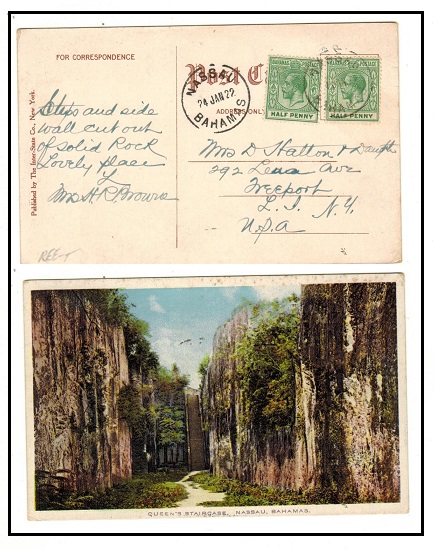 FOR CORRESPONDENCE
Post C
ADDRESS ONLY
NASSAU
24 JAN 22
BAHAMAS
BAHAMAS POSTAGE
HALF PENNY
HALF PENNY
Steps and side
wall cut out
of solid Rock
Lovely place
Mrs H R Browne
Published by The Inter-State Co., New York.
Mrs D Hatton & Daugh
292 Lena Ave
Freeport
L. I. N.Y.
U.S.A
QUEEN'S STAIRCASE, NASSAU, BAHAMAS.